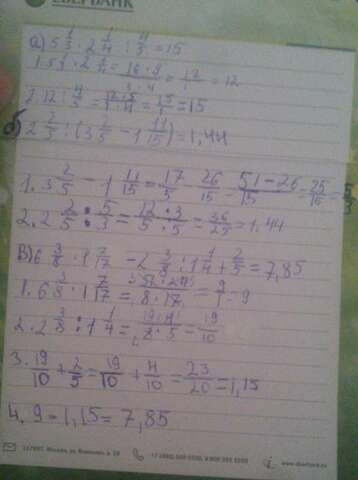 СБЕРБАНК
а) 5 1/3 · 2 1/4 : 4/5 = 15
1. 5 1/3 · 2 1/4 = 16 · 9 / 3 · 4 = 12/1 = 12
2. 12 : 4/5 = 12 · 5 / 1 · 4 = 15/1 = 15
б) 2 2/5 : (3 2/5 - 1 11/15) = 1,44
1. 3 2/5 - 1 11/15 = 17/5 - 26/15 = 51 - 26 / 15 = 25/15 = 5/3
2. 2 2/5 : 5/3 = 12 · 3 / 5 · 5 = 36/25 = 1,44
В) 6 3/8 · 1 7/17 - 2 3/8 : 1 1/4 + 2/5 = 7,85
1. 6 3/8 · 1 7/17 = 51 · 24 / 8 · 17 = 9/1 = 9
2. 2 3/8 : 1 1/4 = 19 · 4 / 8 · 5 = 19/10
3. 19/10 + 2/5 = 19/10 + 4/10 = 23/20 = 1,15
4. 9 - 1,15 = 7,85
117997, Москва, ул. Вавилова, д. 19
www.sberbank.ru